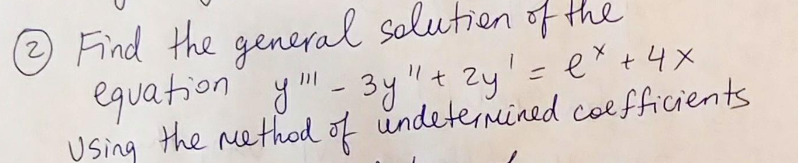 ② Find the general solution of the
equation y''' - 3y'' + 2y' = e^x + 4x
Using the method of undetermined coefficients